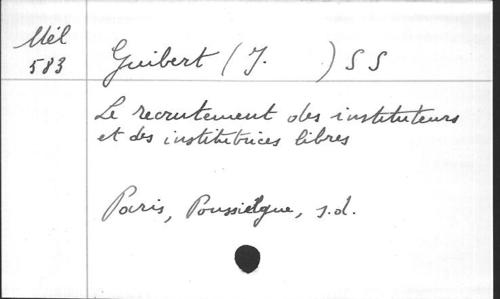 Mél
583
Guibert (J. ) S S
Le recrutement des instituteurs
et des institutrices libres
Paris, Poussielgue, s.d.